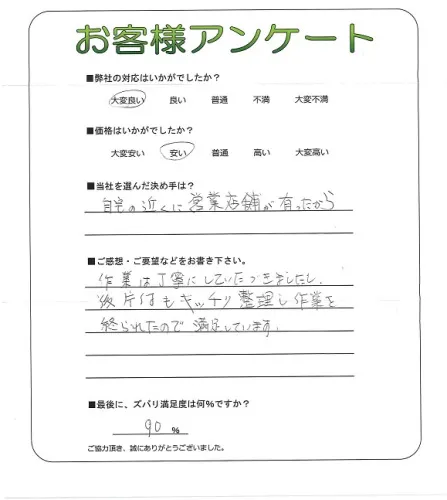 お客様アンケート
■弊社の対応はいかがでしたか?
大変良い 良い 普通 不満 大変不満
■価格はいかがでしたか?
大変安い 安い 普通 高い 大変高い
■当社を選んだ決め手は?
自宅の近くに営業店舗が有ったから
■ご感想・ご要望などをお書き下さい。
作業は丁寧にしていただきましたし、
後片付もキッチリ整理し作業を
終られたので満足しています。
■最後に、ズバリ満足度は何%ですか?
90 %
ご協力頂き、誠にありがとうございました。